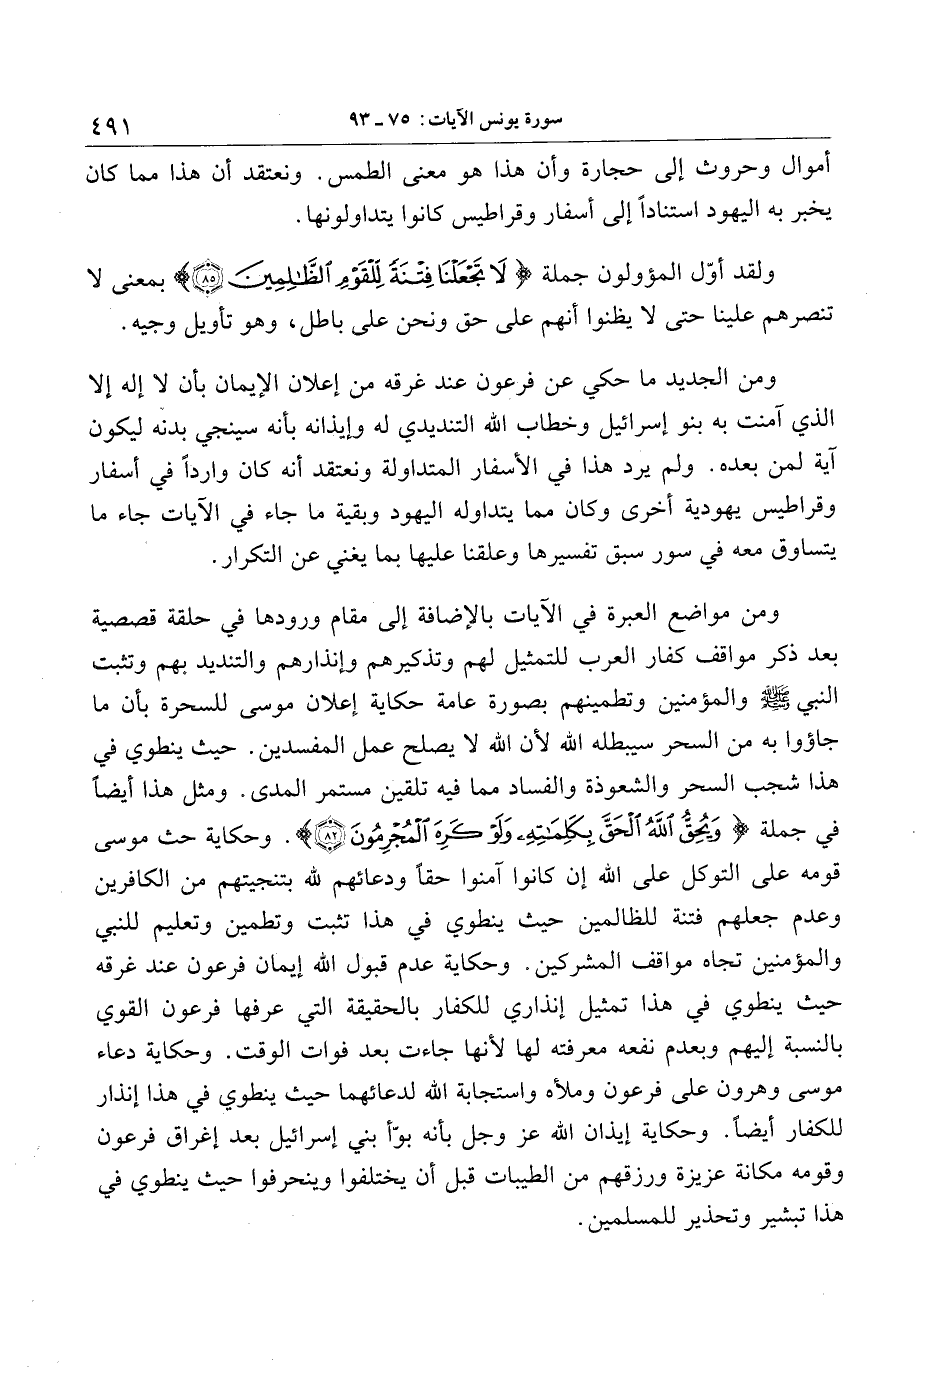 سورة يونس الآيات: ٧٥ ـ ٩٣
٤٩١
أموال وحروث إلى حجارة وأن هذا هو معنى الطمس. ونعتقد أن هذا مما كان
يخبر به اليهود استناداً إلى أسفار وقراطيس كانوا يتداولونها.
ولقد أوّل المؤولون جملة ﴿لَا تَجْعَلْنَا فِتْنَةً لِّلْقَوْمِ الظَّالِمِينَ ٨٥﴾ بمعنى لا
تنصرهم علينا حتى لا يظنوا أنهم على حق ونحن على باطل، وهو تأويل وجيه.
ومن الجديد ما حكي عن فرعون عند غرقه من إعلان الإيمان بأن لا إله إلا
الذي آمنت به بنو إسرائيل وخطاب الله التنديدي له وإيذانه بأنه سينجي بدنه ليكون
آية لمن بعده. ولم يرد هذا في الأسفار المتداولة ونعتقد أنه كان وارداً في أسفار
وقراطيس يهودية أخرى وكان مما يتداوله اليهود وبقية ما جاء في الآيات جاء ما
يتساوق معه في سور سبق تفسيرها وعلقنا عليها بما يغني عن التكرار.
ومن مواضع العبرة في الآيات بالإضافة إلى مقام ورودها في حلقة قصصية
بعد ذكر مواقف كفار العرب للتمثيل لهم وتذكيرهم وإنذارهم والتنديد بهم وتثبت
النبي ﷺ والمؤمنين وتطمينهم بصورة عامة حكاية إعلان موسى للسحرة بأن ما
جاؤوا به من السحر سيبطله الله لأن الله لا يصلح عمل المفسدين. حيث ينطوي في
هذا شجب السحر والشعوذة والفساد مما فيه تلقين مستمر المدى. ومثل هذا أيضاً
في جملة ﴿وَيُحِقُّ اللَّهُ الْحَقَّ بِكَلِمَاتِهِ وَلَوْ كَرِهَ الْمُجْرِمُونَ ٨٢﴾. وحكاية حث موسى
قومه على التوكل على الله إن كانوا آمنوا حقاً ودعائهم لله بتنجيتهم من الكافرين
وعدم جعلهم فتنة للظالمين حيث ينطوي في هذا تثبت وتطمين وتعليم للنبي
والمؤمنين تجاه مواقف المشركين. وحكاية عدم قبول الله إيمان فرعون عند غرقه
حيث ينطوي في هذا تمثيل إنذاري للكفار بالحقيقة التي عرفها فرعون القوي
بالنسبة إليهم وبعدم نفعه معرفته لها لأنها جاءت بعد فوات الوقت. وحكاية دعاء
موسى وهرون على فرعون وملأه واستجابة الله لدعائهما حيث ينطوي في هذا إنذار
للكفار أيضاً. وحكاية إيذان الله عز وجل بأنه بوّأ بني إسرائيل بعد إغراق فرعون
وقومه مكانة عزيزة ورزقهم من الطيبات قبل أن يختلفوا وينحرفوا حيث ينطوي في
هذا تبشير وتحذير للمسلمين.